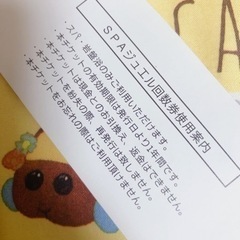 SPAジュエル回数券使用案内
・スパ・岩盤浴のみご利用いただけます。
・本チケットの有効期限は発行日より1年間です。
・本チケットは現金とのお引換え、返金はできません。
・本チケットをご紛失の際、再発行は致しません。
・本チケットをお忘れの際はご利用頂けません。
CA